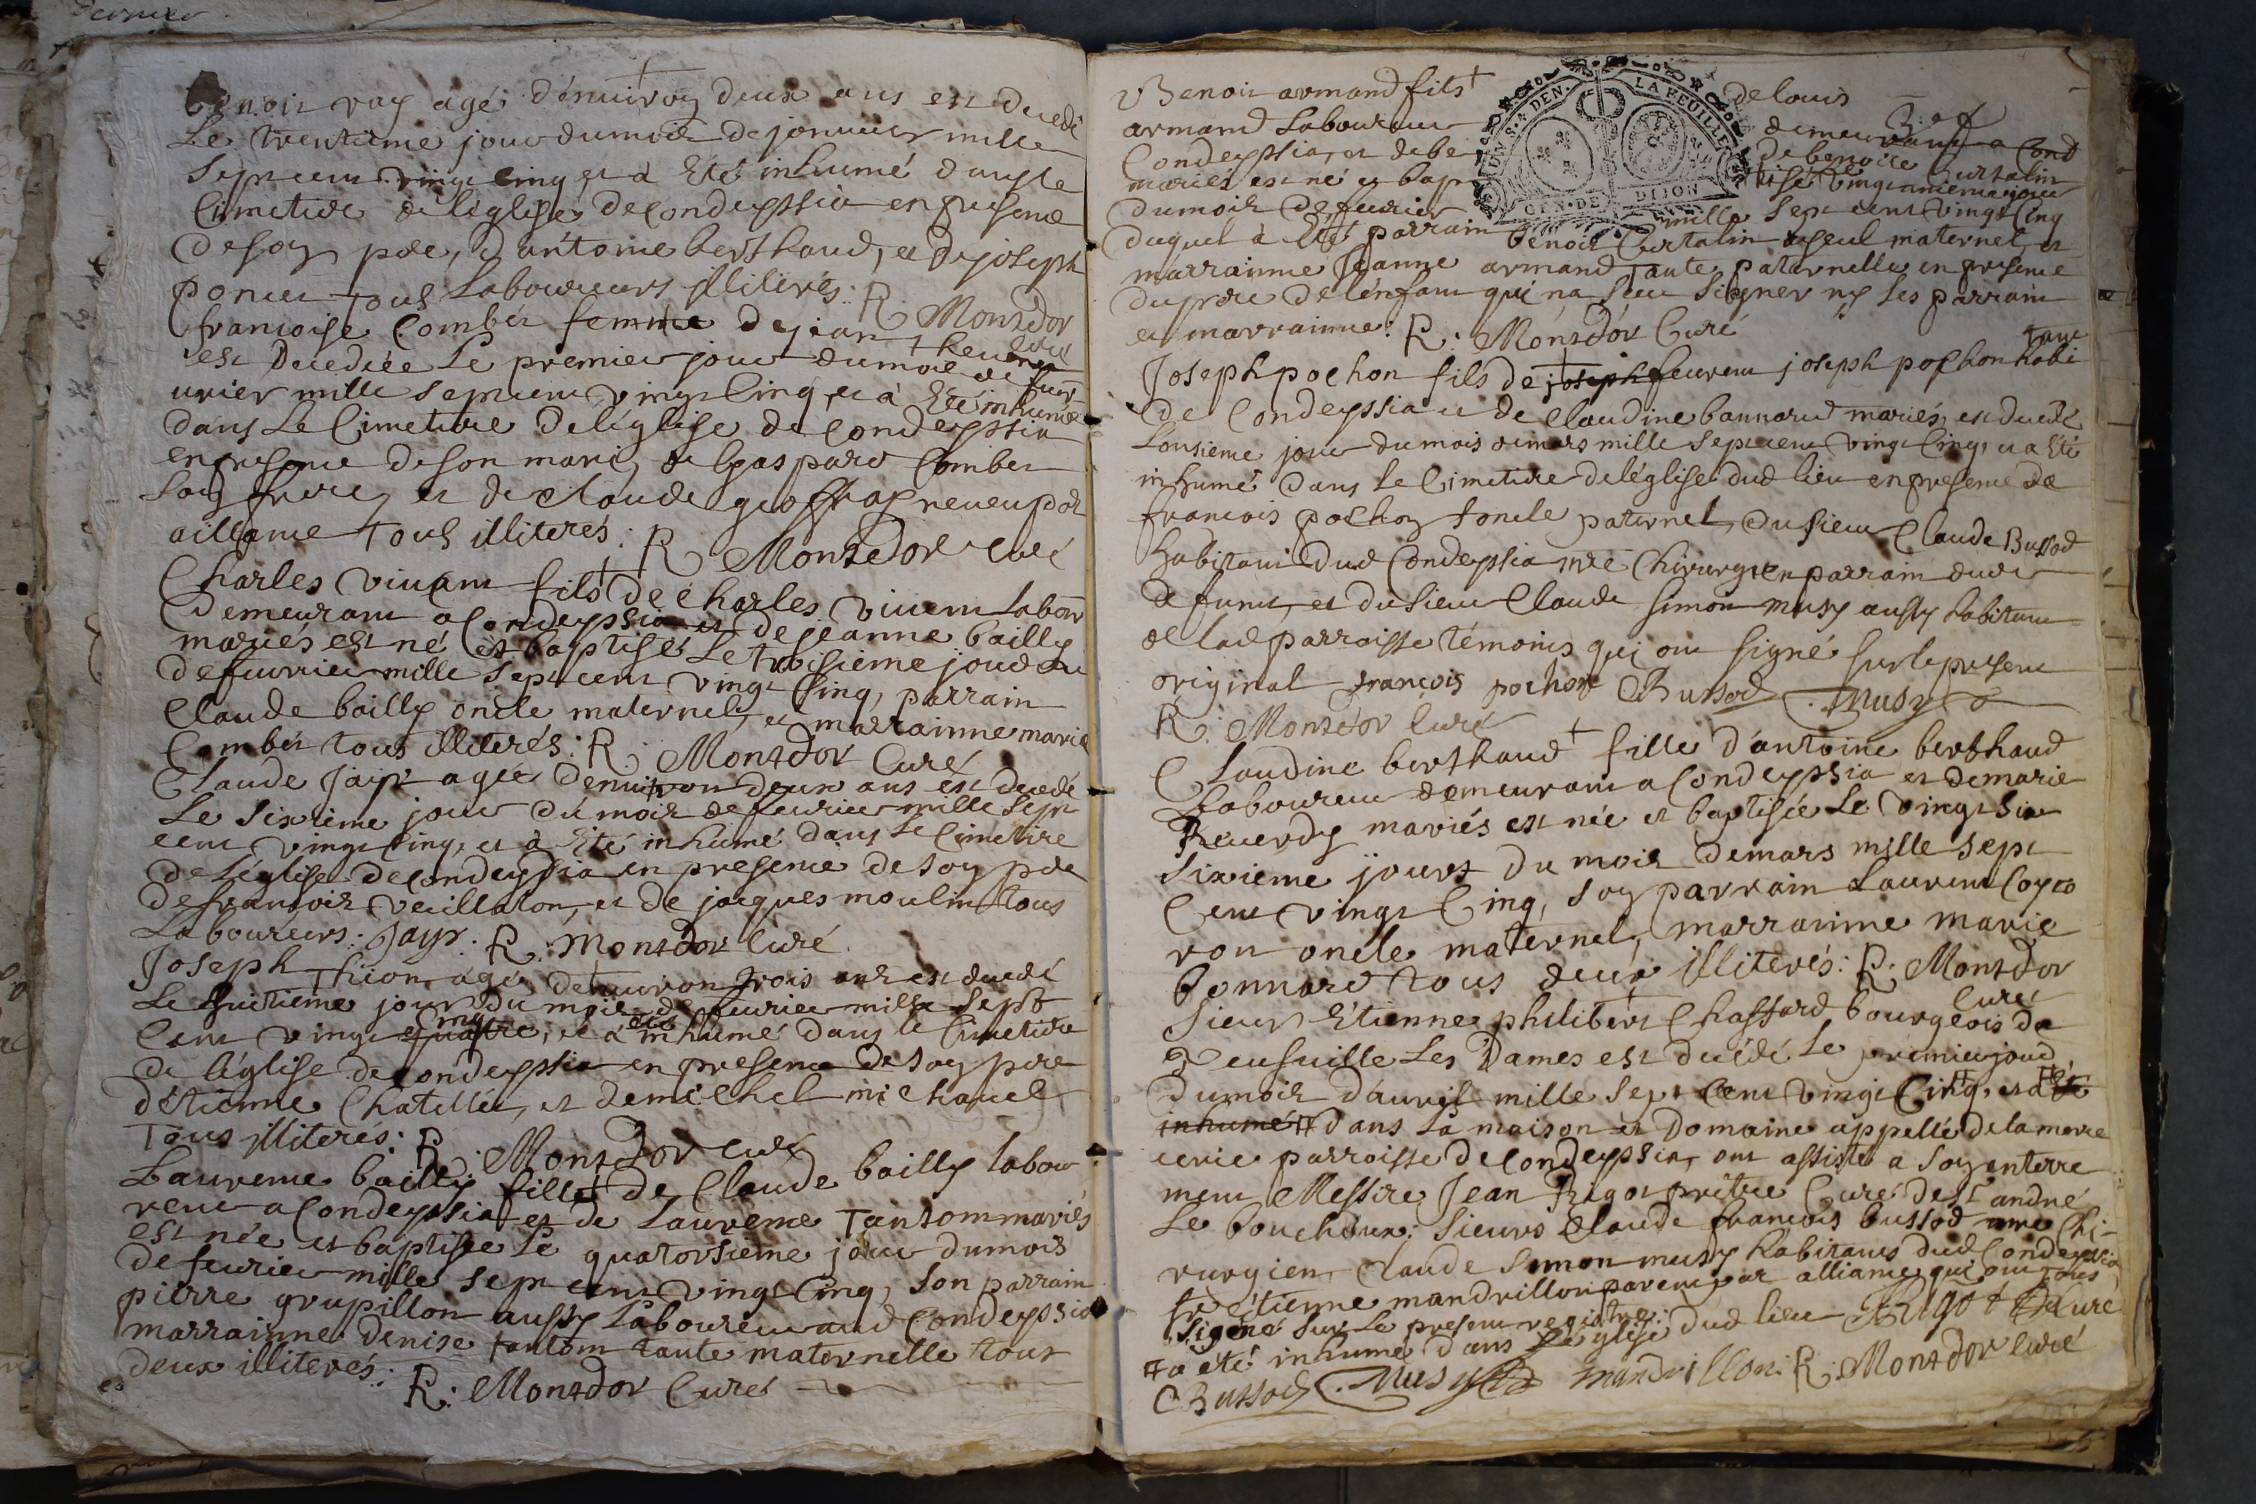 benoit ray agé d'enuiron deux ans est decedé
Le trentieme jour du mois de januier mille
sept cent vingt cinq et à Eté inhumé dans le
Cimetiere de l'eglise de condeyssia en presence
de son pere, d'antoine berthaud, et de joseph
poncet tous Laboureurs illiterés: R Montdor
curé
françoise Combet femme de jean
est decedée Le premier jour du mois de feu
urier mille sept cent vingt Cinq, et à Eté inhumée
dans Le Cimetiere de l'église de condeyssia
en presence de son mari, de gaspard Combet
son frere, et de claude geoffray neveu par
alliance tous illiterés: R Montdor curé
Charles viuant fils de charles viuent Labour
demeurant a Condeyssia et de jeanne bailly
mariés est né et baptisé Le troisieme jour du
de feurier mille sept cent vingt Cinq, parrain
Claude bailly oncle maternel, et marrainne marie
Combet tous illiterés: R Montdor Curé
Claude Jayr agée d'enuiron deux ans est decedé
Le sixieme jour du mois de feurier mille sept
cent vingt Cinq, et à Eté inhumé dans Le Cimetiere
de l'église de condeyssia en presence de son pere
de françois veillaton, et de jacques moulin tous
Laboureurs: Jayr: R: Montdor Curé
Joseph Thion agé d'enuiron trois ans est decedé
Le huitieme jour du mois de feurier mille sept
cent vingt quatre, et à été inhumé dans le Cimetiere
de l'église de condeyssia en presence de son pere
d'étienne Chatellet, et de michel michauel
Tous illiterés: R Montdor curé
Laurence bailly fille de Claude bailly labou
reur a Condeyssia et de Laurence Tantom mariés
est née et baptisée Le quatorsieme jour du mois
de feurier mille sept cent vingt Cinq, son parrain
pierre grupillon aussy Laboureur aud Condeyssia
marrainne denise tantom tante maternelle tout
deux illiterés: R: Montdor Curé
Benoit armand fils de louis
armand Laboureur demeurant a Cond
Condeyssia, et de be de benoite Curtalin
mariés est né et bap tisé vingtunieme jour
du mois de feurier mille sept cent vingt Cinq
duquel à Eté parrain benoit Curtalin ayeul maternel, et
marrainne Jeanne armand tante paternelle en presence
du pere de l'enfant qui na sceu signer ny les parrain
et marrainne: R: Montdor Curé
UN S. 4 DEN. LA FEUILLE
GEN. DE DIJON
Joseph pochon fils de joseph feurent joseph pochon habi
tant
de Condeyssia et de Claudine bonnard mariés, est decedé
Lonsieme jour du mois de mars mille sept cent vingt Cinq, et a Eté
inhumé dans Le Cimetiere de l'église dud lieu en presence de
françois pochon Loncle paternel, du sieur Claude Bussod
habitant dud Condeyssia mre Chirurgien parrain dudit
defunt, et du sieur Claude simon musy aussy habitant
de lad parroisse témoins qui ont signé sur le present
original françois pochon CBussod Musy
R: Montdor Curé
Claudine berthaud fille d'antoine berthaud
Laboureur demeurant a Condeyssia et de marie
Reuerdy mariés est née et baptisée Le vingt six
sixieme jours du mois de mars mille sept
Cent vingt Cinq, son parrain Laurent Coyto
ron oncle maternel, marrainne marie
bonnard tous deux illiterés: R: Montdor
Curé
Sieur Etienne philibert Chassard bourgeois de
Neufuille Les Dames est decédé Le premier jour
du mois d'auril mille sept cent vingt Cinq, et a été
inhumé dans sa maison et Domaine appellé de la merce
cerie parroisse de Condeyssia, ont assisté a son enterre
ment Messire Jean Rigot prêtre Curé de st andré
Le bouchoux: Sieurs Claude françois bussod mre Chi-
rurgien, Claude simon musy habitants dud Condeyssia
sr étienne mandrillon parent par alliance qui ont tous
signé sur Le present registre:
a eté inhumé dans l'eglise dud lieu Rigot Curé
CBussod Musy mandrillon: R: Montdor Curé